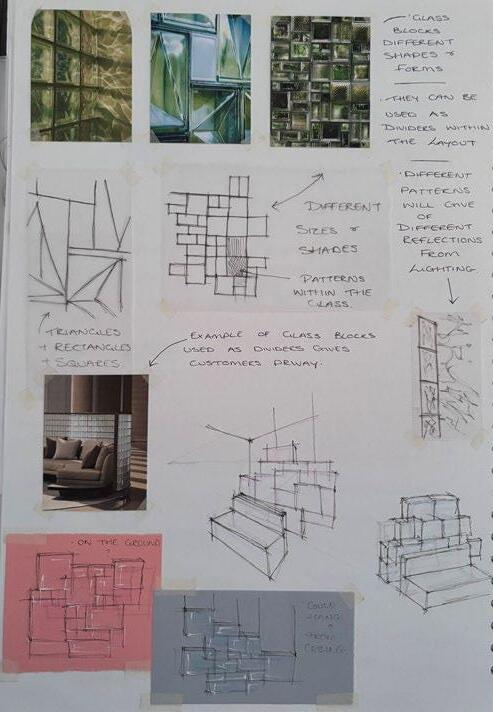 · GLASS
BLOCKS
DIFFERENT
SHAPES &
FORMS
· THEY CAN BE
USED AS
DIVIDERS WITHIN
THE LAYOUT
· DIFFERENT
PATTERNS
WILL GIVE
OF
DIFFERENT
REFLECTIONS
FROM
LIGHTING
DIFFERENT
SIZES &
SHADES
PATTERNS
WITHIN THE
GLASS.
TRIANGLES
+ RECTANGLES
+ SQUARES
EXAMPLE OF GLASS BLOCKS
USED AS DIVIDERS GIVES
CUSTOMERS PRIVAY.
· ON THE GROUND
COULD
HANG
FROM
CEILING